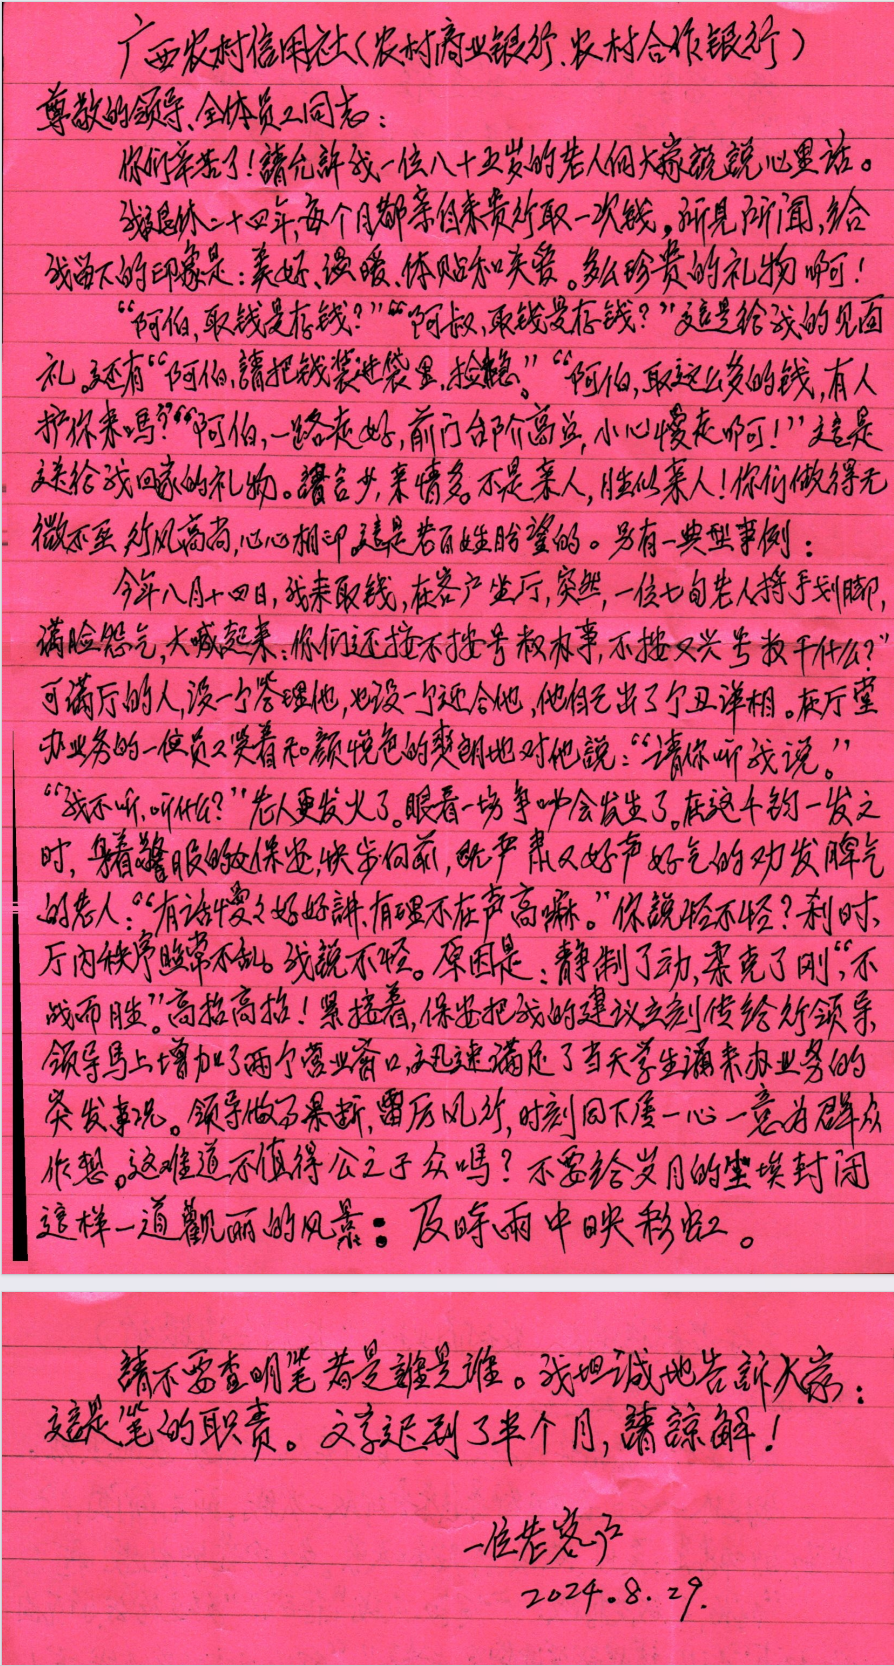 广西农村信用社(农村商业银行、农村合作银行)
尊敬的领导、全体员工同志:
你们辛苦了!請允許我一位八十五岁的老人向大家說說心里话。
我退休二十四年,每个月都亲自来贵行取一次钱。所見所闻,给
我留下的印象是:美好、温暖、体贴和关爱。多么珍贵的礼物啊!
“阿伯,取钱是存钱?”“阿叔,取钱是存钱?”这是给我的见面
礼。还有“阿伯,請把钱装进袋里,捡穩。”“阿伯,取这么多的钱,有人
护你来嗎?”“阿伯,一路走好,前门台阶高益,小心慢走啊!”这是
送给我回家的礼物。語言少,亲情多。不是亲人,胜似亲人!你们做得无
微不至,行风高尚,心心相印,這是老百姓盼望的。另有一典型事例:
今年八月十四日,我来取钱,在客户坐厅,突然,一位七旬老人捋手划脚,
满脸怨气,大喊起来:你们还按不按号叔办事,不按又兴号叔干什么?”
可满厅的人,没一个答理他,也没一个迎合他,他自己出了个丑详相。在厅堂
办业务的一位员工笑着和颜悦色的爽朗地对他說:“请你听我说。”
“我不听,听什么?”老人更发火了。眼看一场争吵会发生了。在这千钧一发之
时,身着警服的女保安,快步向前,既严肃又好声好气的劝发脾气
的老人:“有话慢之好好講,有理不在声高嘛。”你說怪不怪?刹时,
厅内秩序照常不乱。我說不怪。原因是:静制了动,柔克了刚,“不
战而胜”。高招高招!紧接着,保安把我的建议立刻传给行领导,
领导馬上增加了两个营业窗口,迅速满足了当天学生潘来办业务的
突发事况。领导做了果断,雷厉风行,时刻同下属一心一意为群众
作想。这难道不值得公之于众嗎?不要给岁月的尘埃封闭
這样一道觀丽的风景:及時雨中映彩虹。
請不要查明笔者是誰是谁。我坦诚地告訴大家:
这是笔的职责。文字迟到了半个月,請諒解!
一位老客户
2024.8.29.